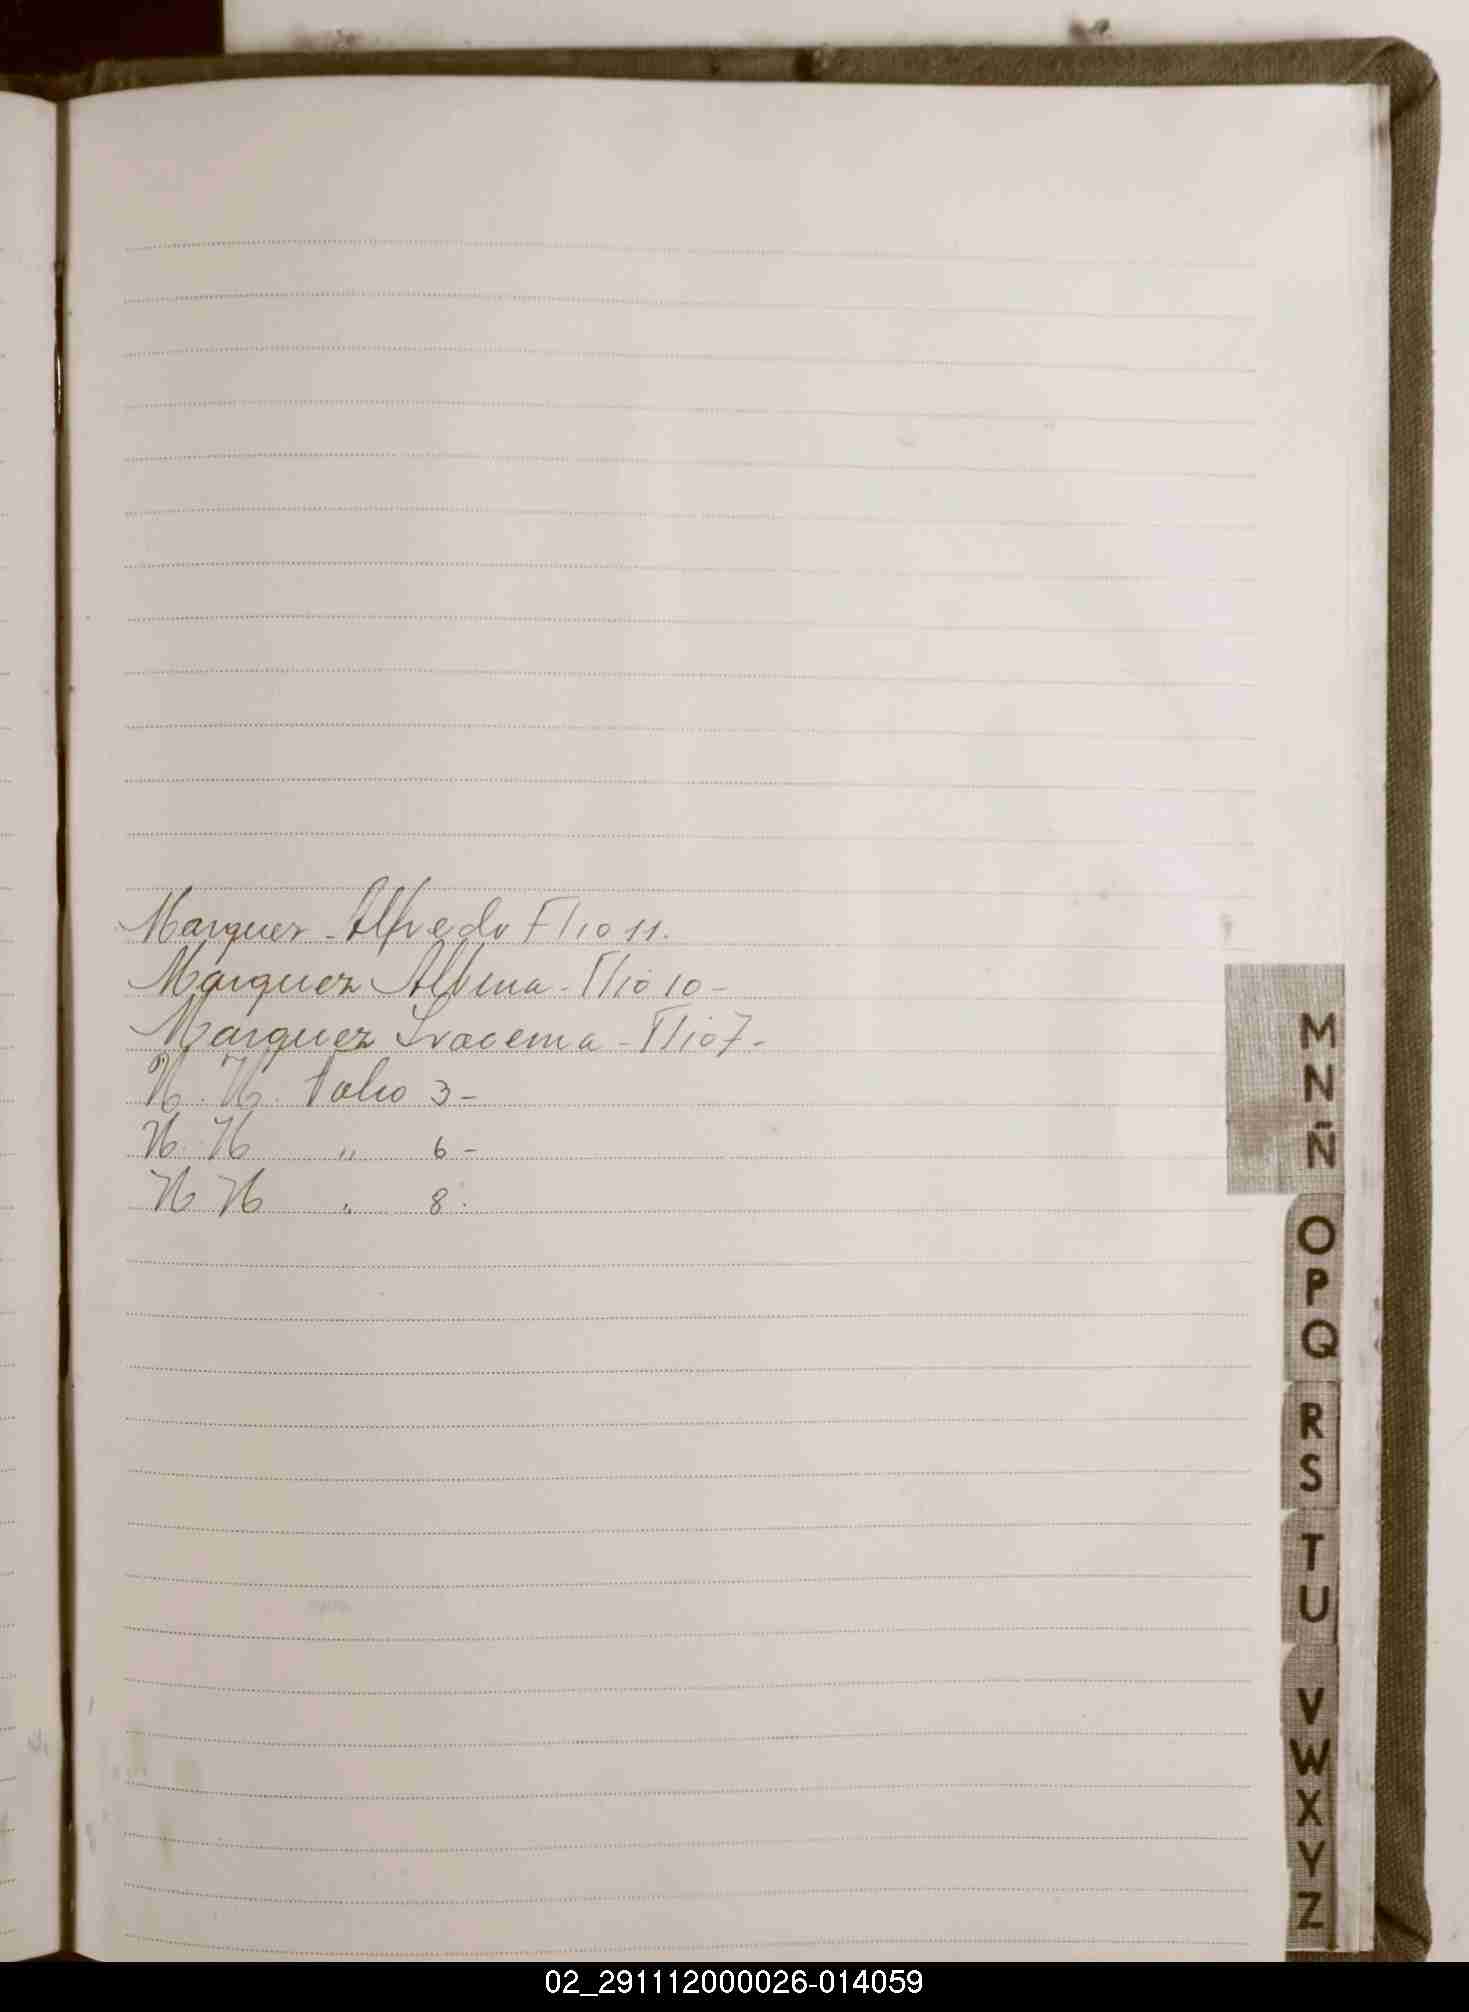 Marquez - Alfredo Flio 11.
Marquez Albina - Flio 10 -
Marquez Iracema - Flio 7 -
N. N. folio 3 -
N. N " 6 -
N N " 8.
M
N
Ñ
O
P
Q
R
S
T
U
V
W
X
Y
Z
02_291112000026-014059